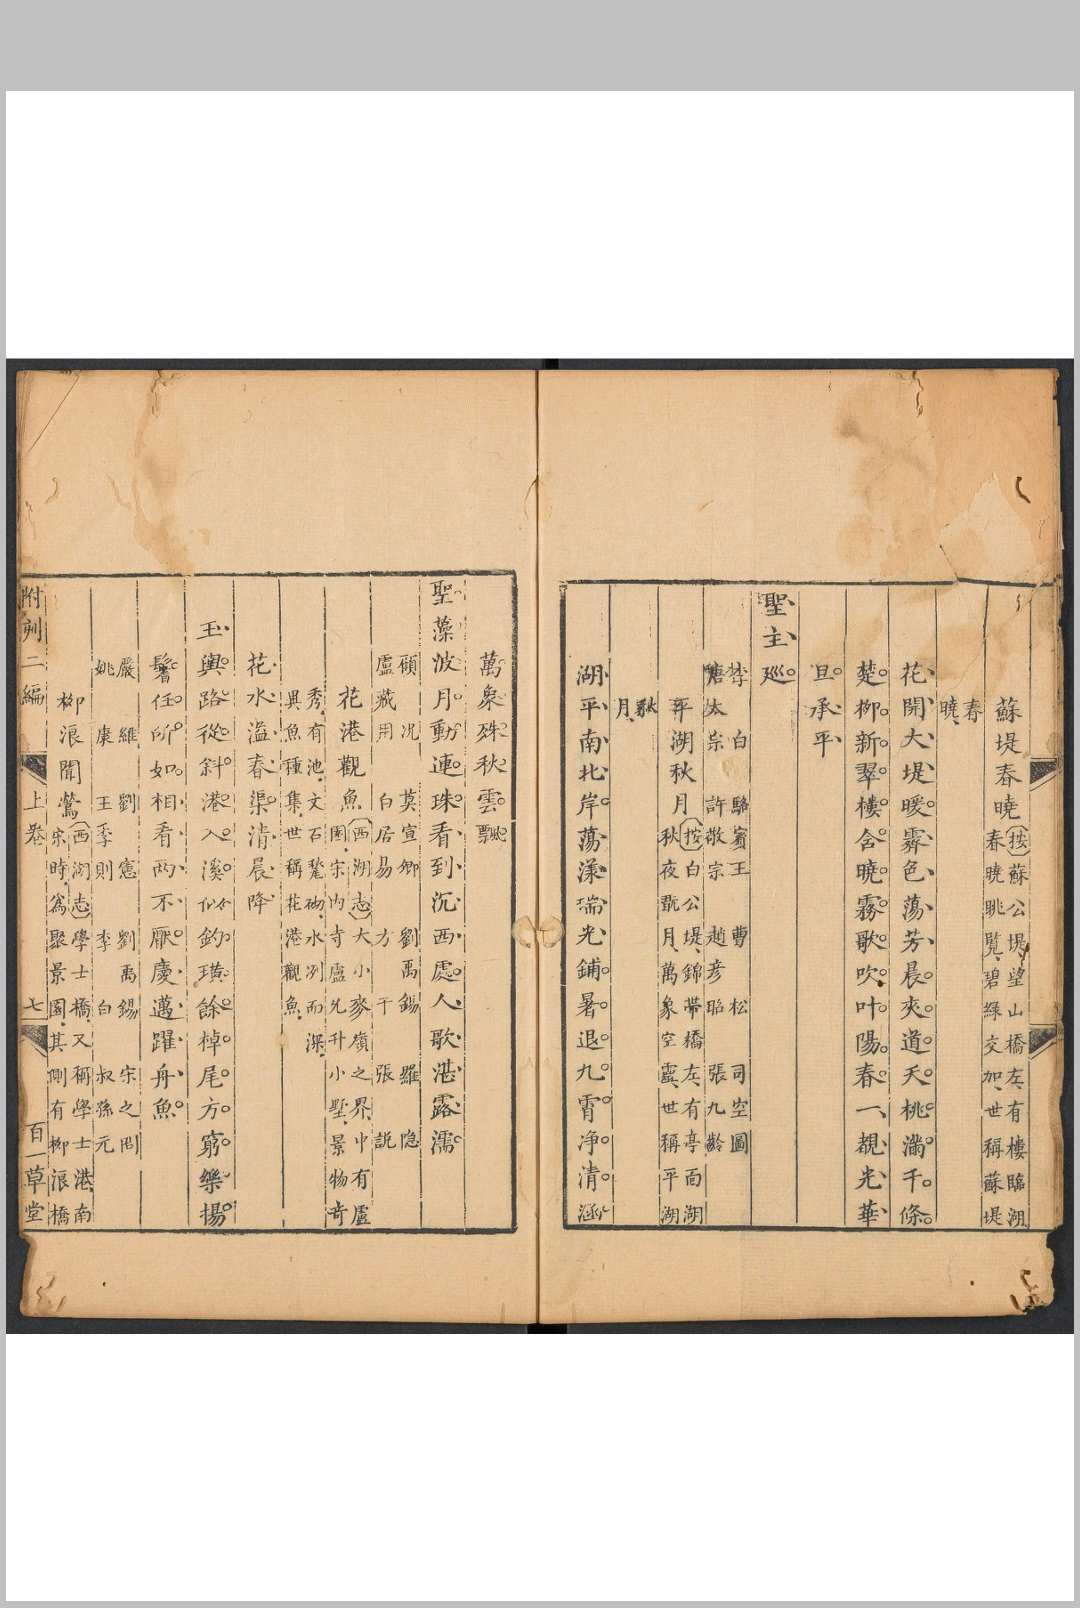 蘇堤春曉
(按)蘇公堤望山橋左有樓臨湖
春曉眺覽碧綠交加世稱蘇堤
春
曉
花開大堤暖霽色蕩芳晨夾道夭桃滿千條
楚柳新翠樓含曉霧歌吹叶陽春一覩光華
旦承平
聖主巡
李白 駱賓王 曹松 司空圖
唐太宗 許敬宗 趙彥昭 張九齡
平湖秋月
(按)白公堤錦帶橋左有亭面湖
秋夜翫月萬象空靈世稱平湖
秋
月
湖平南北岸蕩漾瑞光鋪暑退九霄净清涵
萬象殊秋雲飄
聖藻波月動連珠看到沉西處人歌湛露濡
顧况 莫宣卿 劉禹錫 羅隐
盧藏用 白居易 方干 張說
花港觀魚
(西湖志)大小麥嶺之界中有盧
園宋内寺盧允升小墅景物奇
秀有池文石甃砌水冽而深
異魚種集世稱花港觀魚
花水溢春渠清晨降
玉輿路從斜港入溪似釣璜餘棹尾方窮樂揚
鬐任所如相看兩不厭慶邁躍舟魚
嚴維 劉憲 劉禹錫 宋之問
姚康 王季則 李白 叔孫元
柳浪聞鶯
(西湖志)學士橋又稱學士港南
宋時爲聚景園其側有柳浪橋
附刻二編 上卷 七 百一草堂